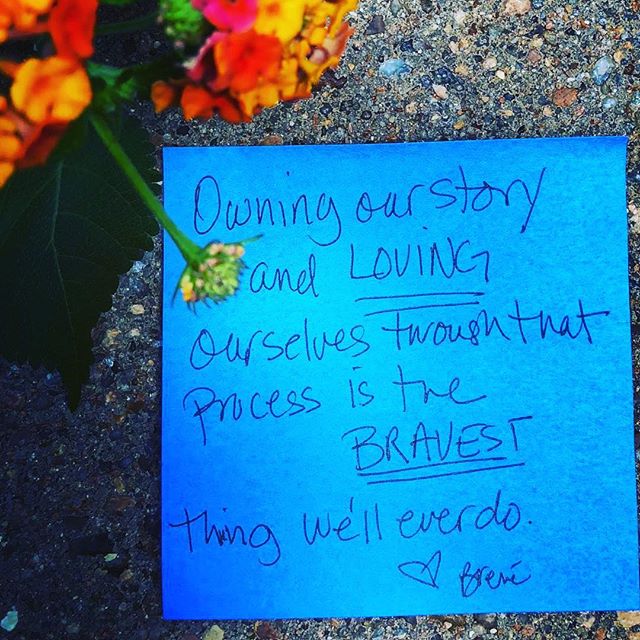 Owning our story
and LOVING
ourselves through that
process is the
BRAVEST
thing we'll ever do.
♡ Brené